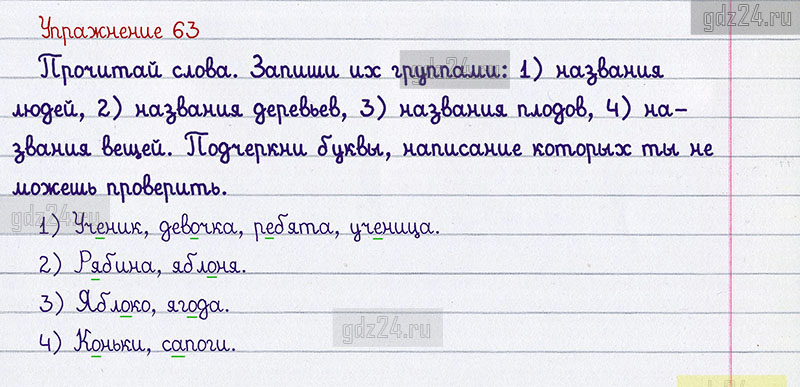 gdz24.ru
Упражнение 63
Прочитай слова. Запиши их группами: 1) названия
людей, 2) названия деревьев, 3) названия плодов, 4) на-
звания вещей. Подчеркни буквы, написание которых ты не
можешь проверить.
1) Ученик, девочка, ребята, ученица.
2) Рябина, яблоня.
3) Яблоко, ягода.
4) Коньки, сапоги.
gdz24.ru